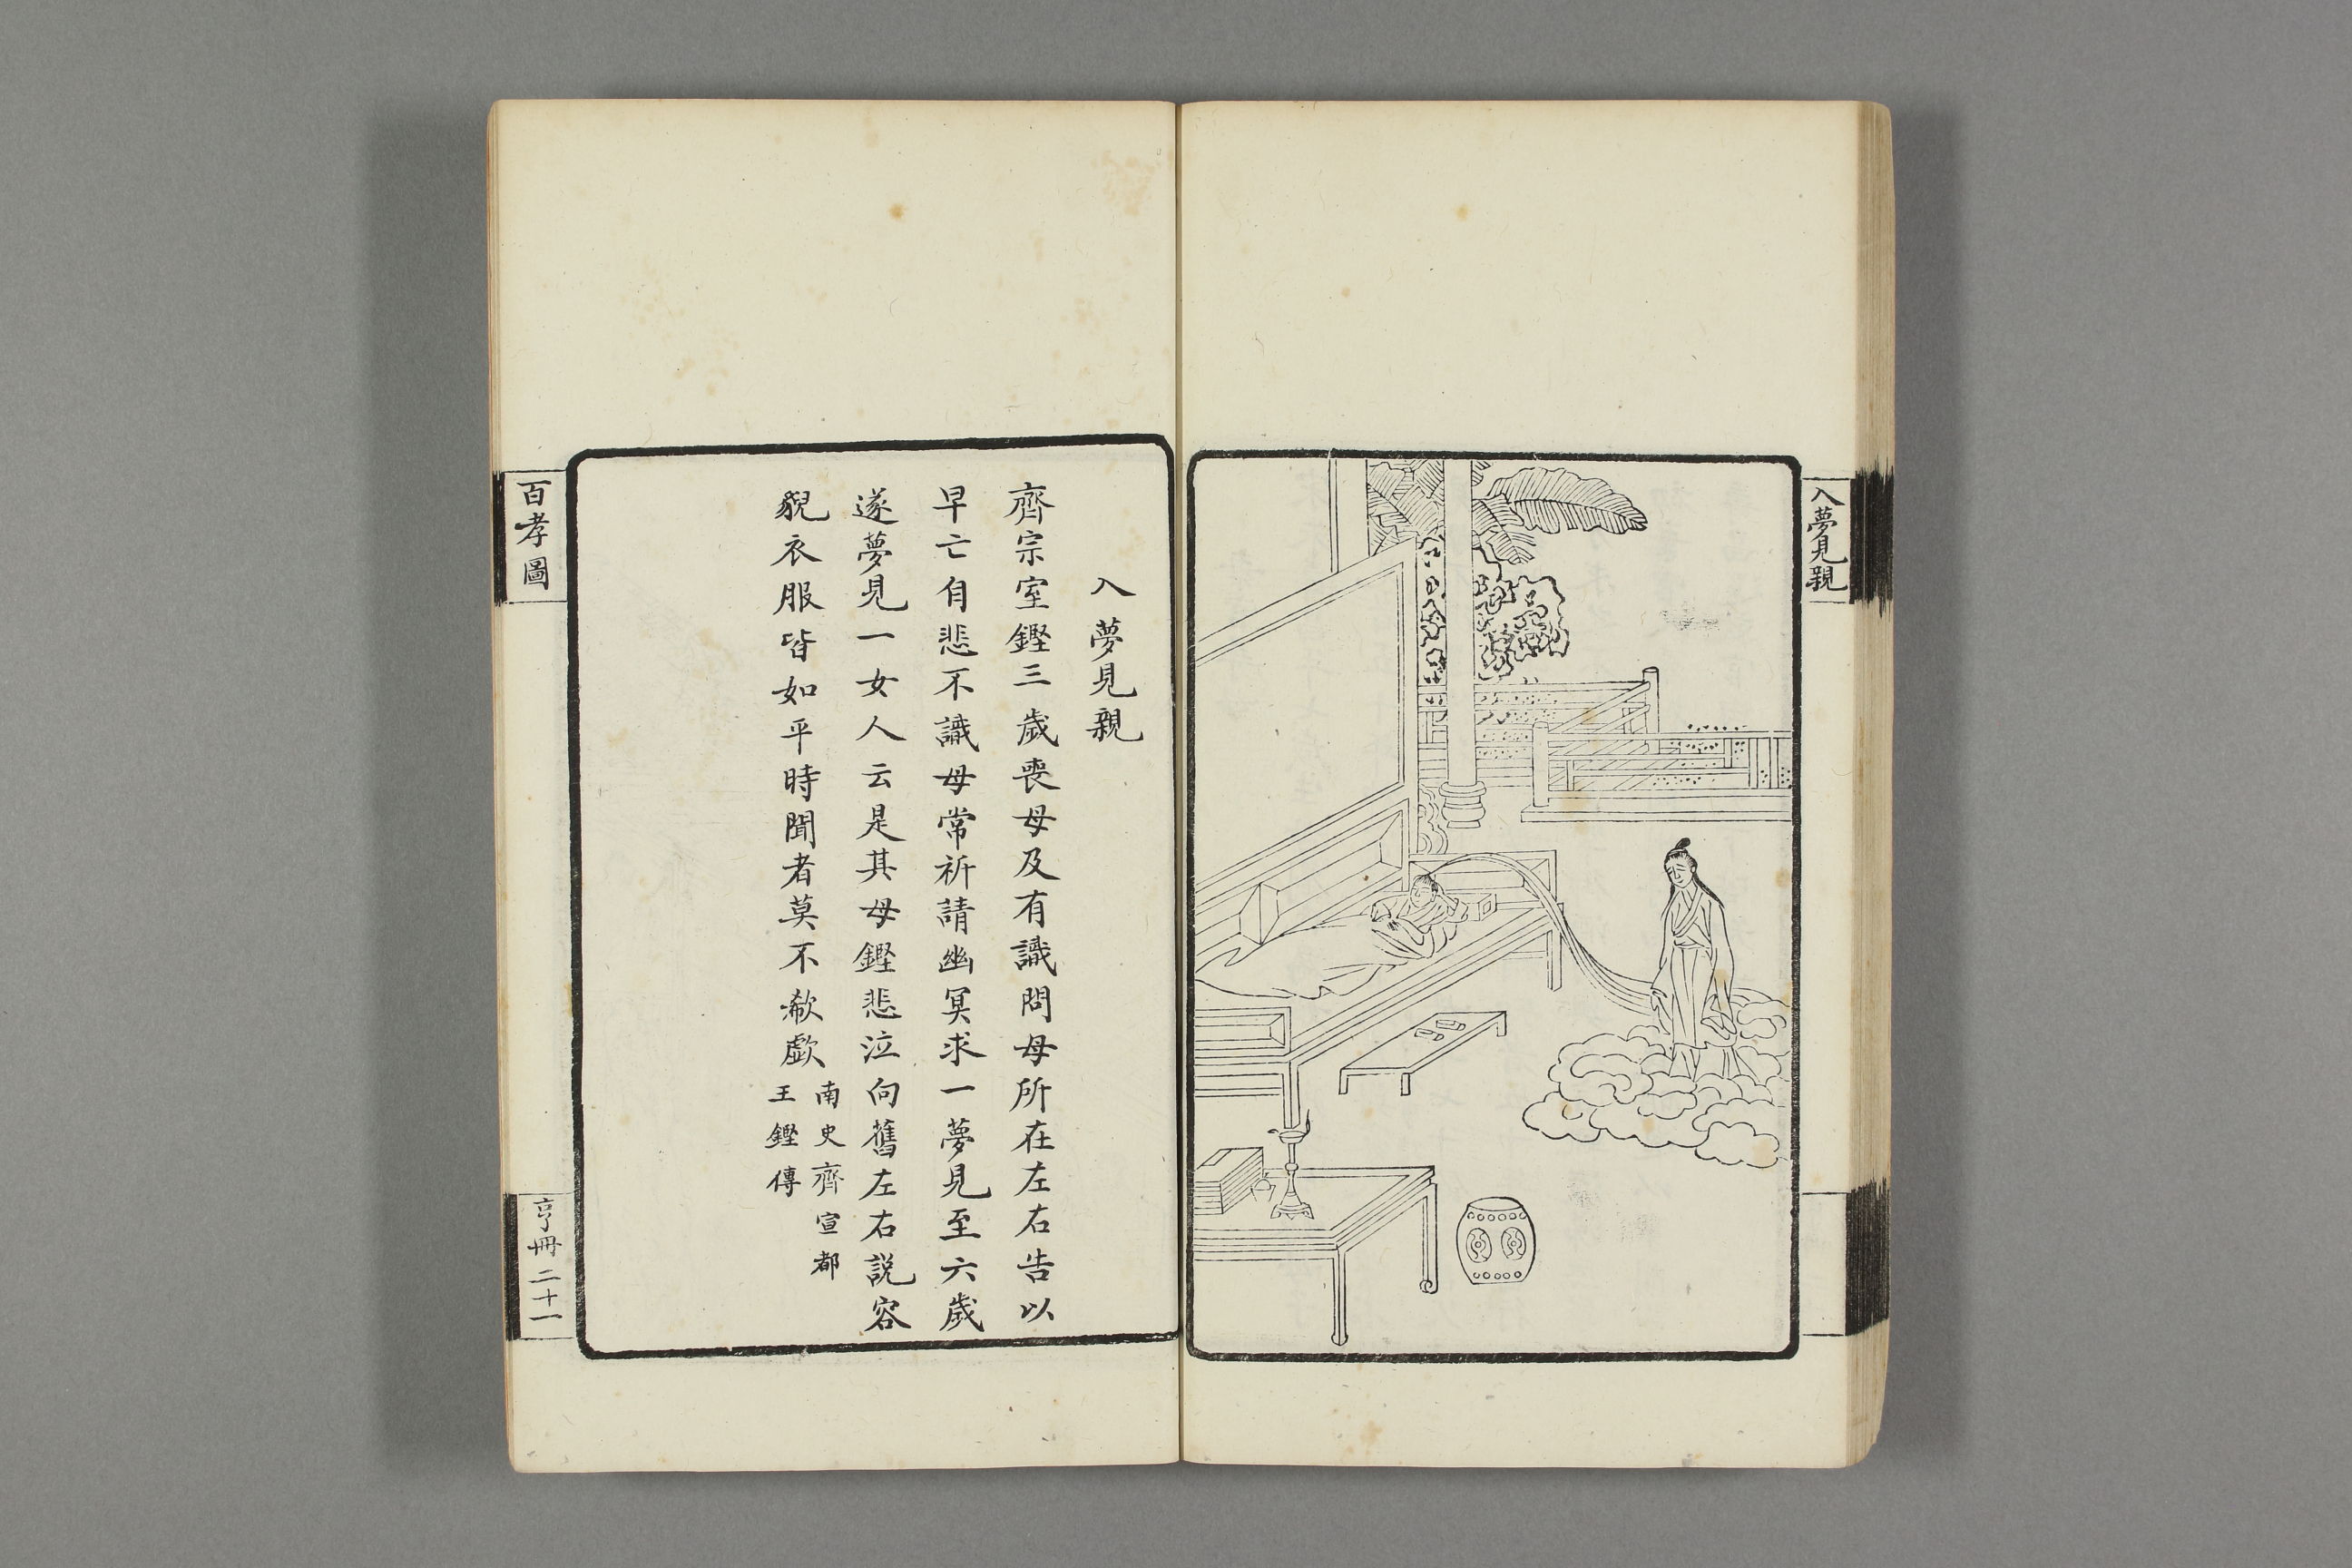 入夢見親
入夢見親
齊宗室鏗三歲喪母及有識問母所在左右告以
早亡自悲不識母常祈請幽冥求一夢見至六歲
遂夢見一女人云是其母鏗悲泣向舊左右説容
貌衣服皆如平時聞者莫不欷歔
南史齊宣都
王鏗傳
百孝圖
亨冊二十一